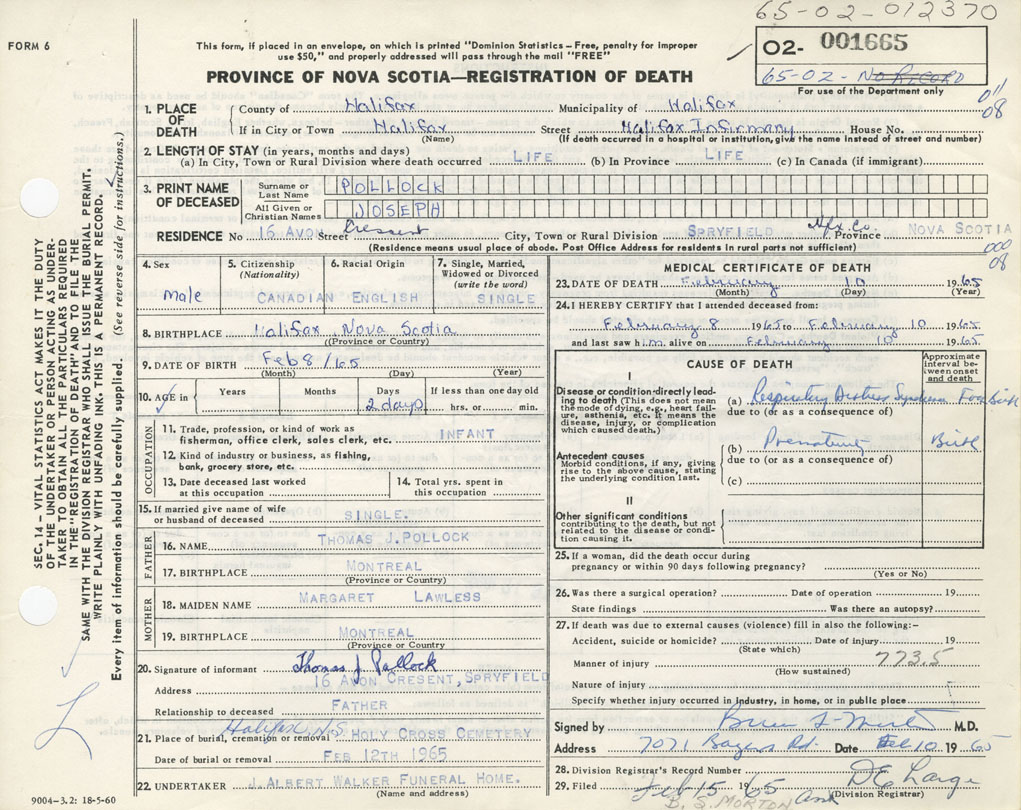 65-02-012370
FORM 6
This form, if placed in an envelope, on which is printed "Dominion Statistics – Free, penalty for improper
use $50," and properly addressed will pass through the mail "FREE"
O2- 001665
65-02- No RECORD
PROVINCE OF NOVA SCOTIA—REGISTRATION OF DEATH
For use of the Department only
011
08
1. PLACE OF DEATH County of Halifax Municipality of Halifax
If in City or Town Halifax (Name) Street Halifax Infirmary House No.
(If death occurred in a hospital or institution, give the name instead of street and number)
2. LENGTH OF STAY (in years, months and days)
(a) In City, Town or Rural Division where death occurred LIFE (b) In Province LIFE (c) In Canada (if immigrant)
3. PRINT NAME OF DECEASED Surname or Last Name POLLOCK
All Given or Christian Names JOSEPH
RESIDENCE No 16 AVON Street Cressent City, Town or Rural Division SPRYFIELD Hfx. Co. Province NOVA SCOTIA
(Residence means usual place of abode. Post Office Address for residents in rural parts not sufficient)
000
08
4. Sex male
5. Citizenship (Nationality) CANADIAN
6. Racial Origin ENGLISH
7. Single, Married, Widowed or Divorced (write the word) SINGLE
8. BIRTHPLACE Halifax, Nova Scotia
(Province or Country)
9. DATE OF BIRTH Feb 8/65
(Month) (Day) (Year)
10. AGE in Years Months Days 2 days If less than one day old hrs. or min.
OCCUPATION
11. Trade, profession, or kind of work as fisherman, office clerk, sales clerk, etc. INFANT
12. Kind of industry or business, as fishing, bank, grocery store, etc.
13. Date deceased last worked at this occupation
14. Total yrs. spent in this occupation
15. If married give name of wife or husband of deceased SINGLE.
FATHER
16. NAME THOMAS J. POLLOCK
17. BIRTHPLACE MONTREAL
(Province or Country)
MOTHER
18. MAIDEN NAME MARGARET LAWLESS
19. BIRTHPLACE MONTREAL
(Province or Country)
20. Signature of informant Thomas J Pollock
Address 16 AVON CRESENT, SPRYFIELD
Relationship to deceased FATHER
21. Place of burial, cremation or removal Halifax, N.S. HOLY CROSS CEMETERY
Date of burial or removal FEB 12TH 1965
22. UNDERTAKER J. ALBERT WALKER FUNERAL HOME.
(Name and address)
MEDICAL CERTIFICATE OF DEATH
23. DATE OF DEATH February 10 1965
(Month) (Day) (Year)
24. I HEREBY CERTIFY that I attended deceased from:
February 8 1965 to February 10 1965
and last saw him alive on February 10 1965
CAUSE OF DEATH
Approximate interval between onset and death
I
Disease or condition directly leading to death (This does not mean the mode of dying, e.g., heart failure, asthenia, etc. It means the disease, injury, or complication which caused death.)
(a) Respiratory Distress Syndrome From Birth
due to (or as a consequence of)
Antecedent causes
Morbid conditions, if any, giving rise to the above cause, stating the underlying condition last.
(b) Prematurity Birth
due to (or as a consequence of)
(c)
II
Other significant conditions
contributing to the death, but not related to the disease or condition causing it.
25. If a woman, did the death occur during
pregnancy or within 90 days following pregnancy?
(Yes or No)
26. Was there a surgical operation? Date of operation 19
State findings Was there an autopsy?
27. If death was due to external causes (violence) fill in also the following:–
Accident, suicide or homicide? Date of injury 19
(State which)
Manner of injury 773.5
(How sustained)
Nature of injury
Specify whether injury occurred in industry, in home, or in public place
Signed by M.D.
Address 7071 Bayers Rd. Date Feb 10 1965
28. Division Registrar's Record Number
29. Filed Feb 15 1965
(Division Registrar)
B. S. MORTON
SEC. 14 – VITAL STATISTICS ACT MAKES IT THE DUTY
OF THE UNDERTAKER OR PERSON ACTING AS UNDER-
TAKER TO OBTAIN ALL THE PARTICULARS REQUIRED
IN THE "REGISTRATION OF DEATH" AND TO FILE THE
SAME WITH THE DIVISION REGISTRAR WHO SHALL ISSUE THE BURIAL PERMIT.
WRITE PLAINLY WITH UNFADING INK. THIS IS A PERMANENT RECORD.
Every item of information should be carefully supplied. (See reverse side for instructions.)
9004–3.2: 18-5-60